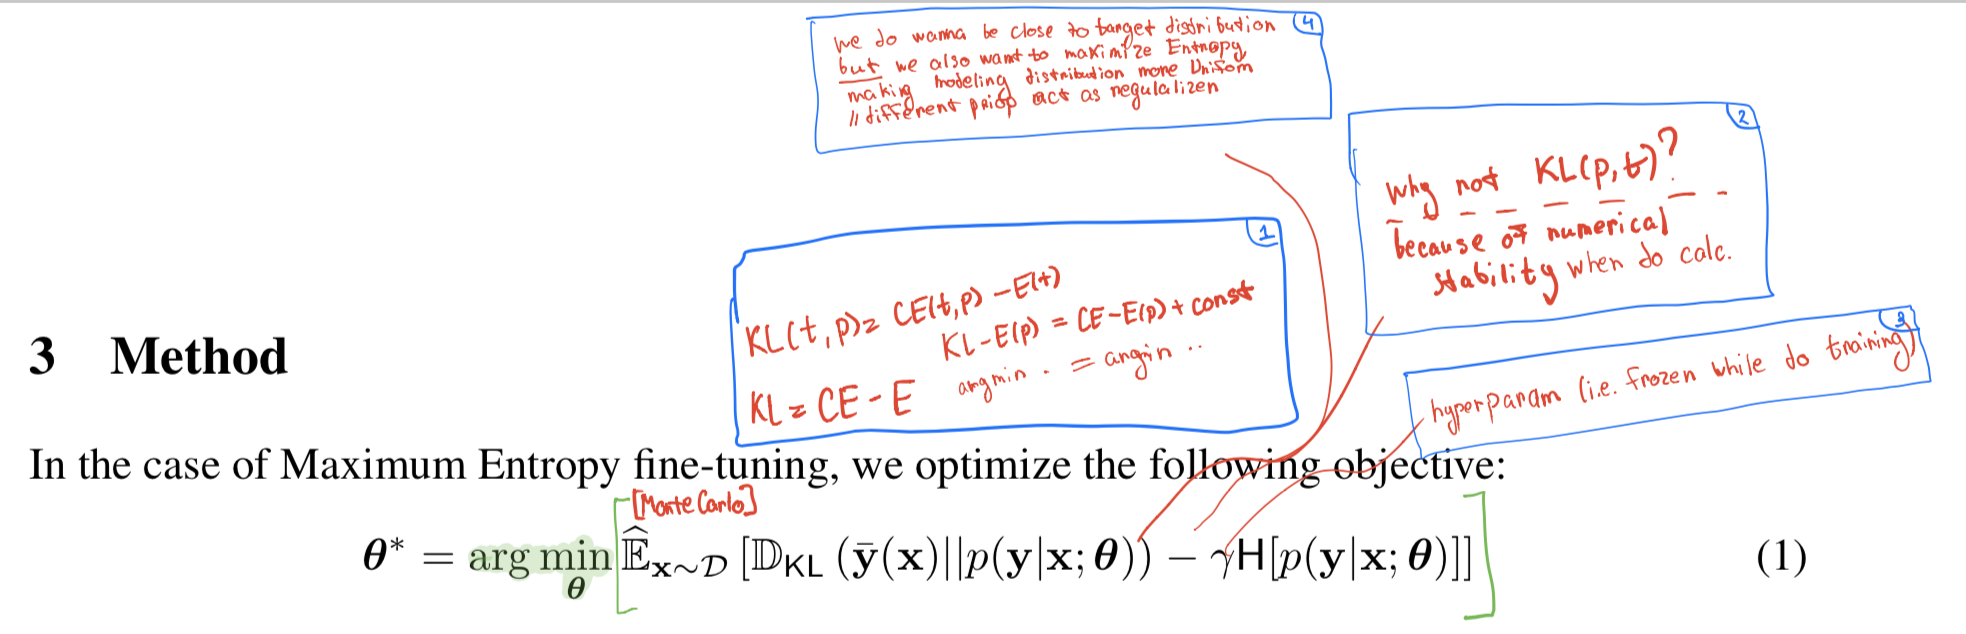 we do wanna be close to target distribution
but we also want to maximize Entropy
making modeling distribution more Unifom
// different prior act as regulalizer
4
2
why not KL(p,t)?
because of numerical
stability when do calc.
1
KL(t,p)= CE(t,p) - E(t)
KL-E(p) = CE-E(p) + const
KL = CE - E
argmin . = argin ..
3
hyperparam (i.e. frozen while do training)
3 Method
In the case of Maximum Entropy fine-tuning, we optimize the following objective:
[Monte Carlo]
θ* = arg min_θ [Ê_{x∼D} [D_KL (ȳ(x)||p(y|x; θ)) − γH[p(y|x; θ)]] ] (1)